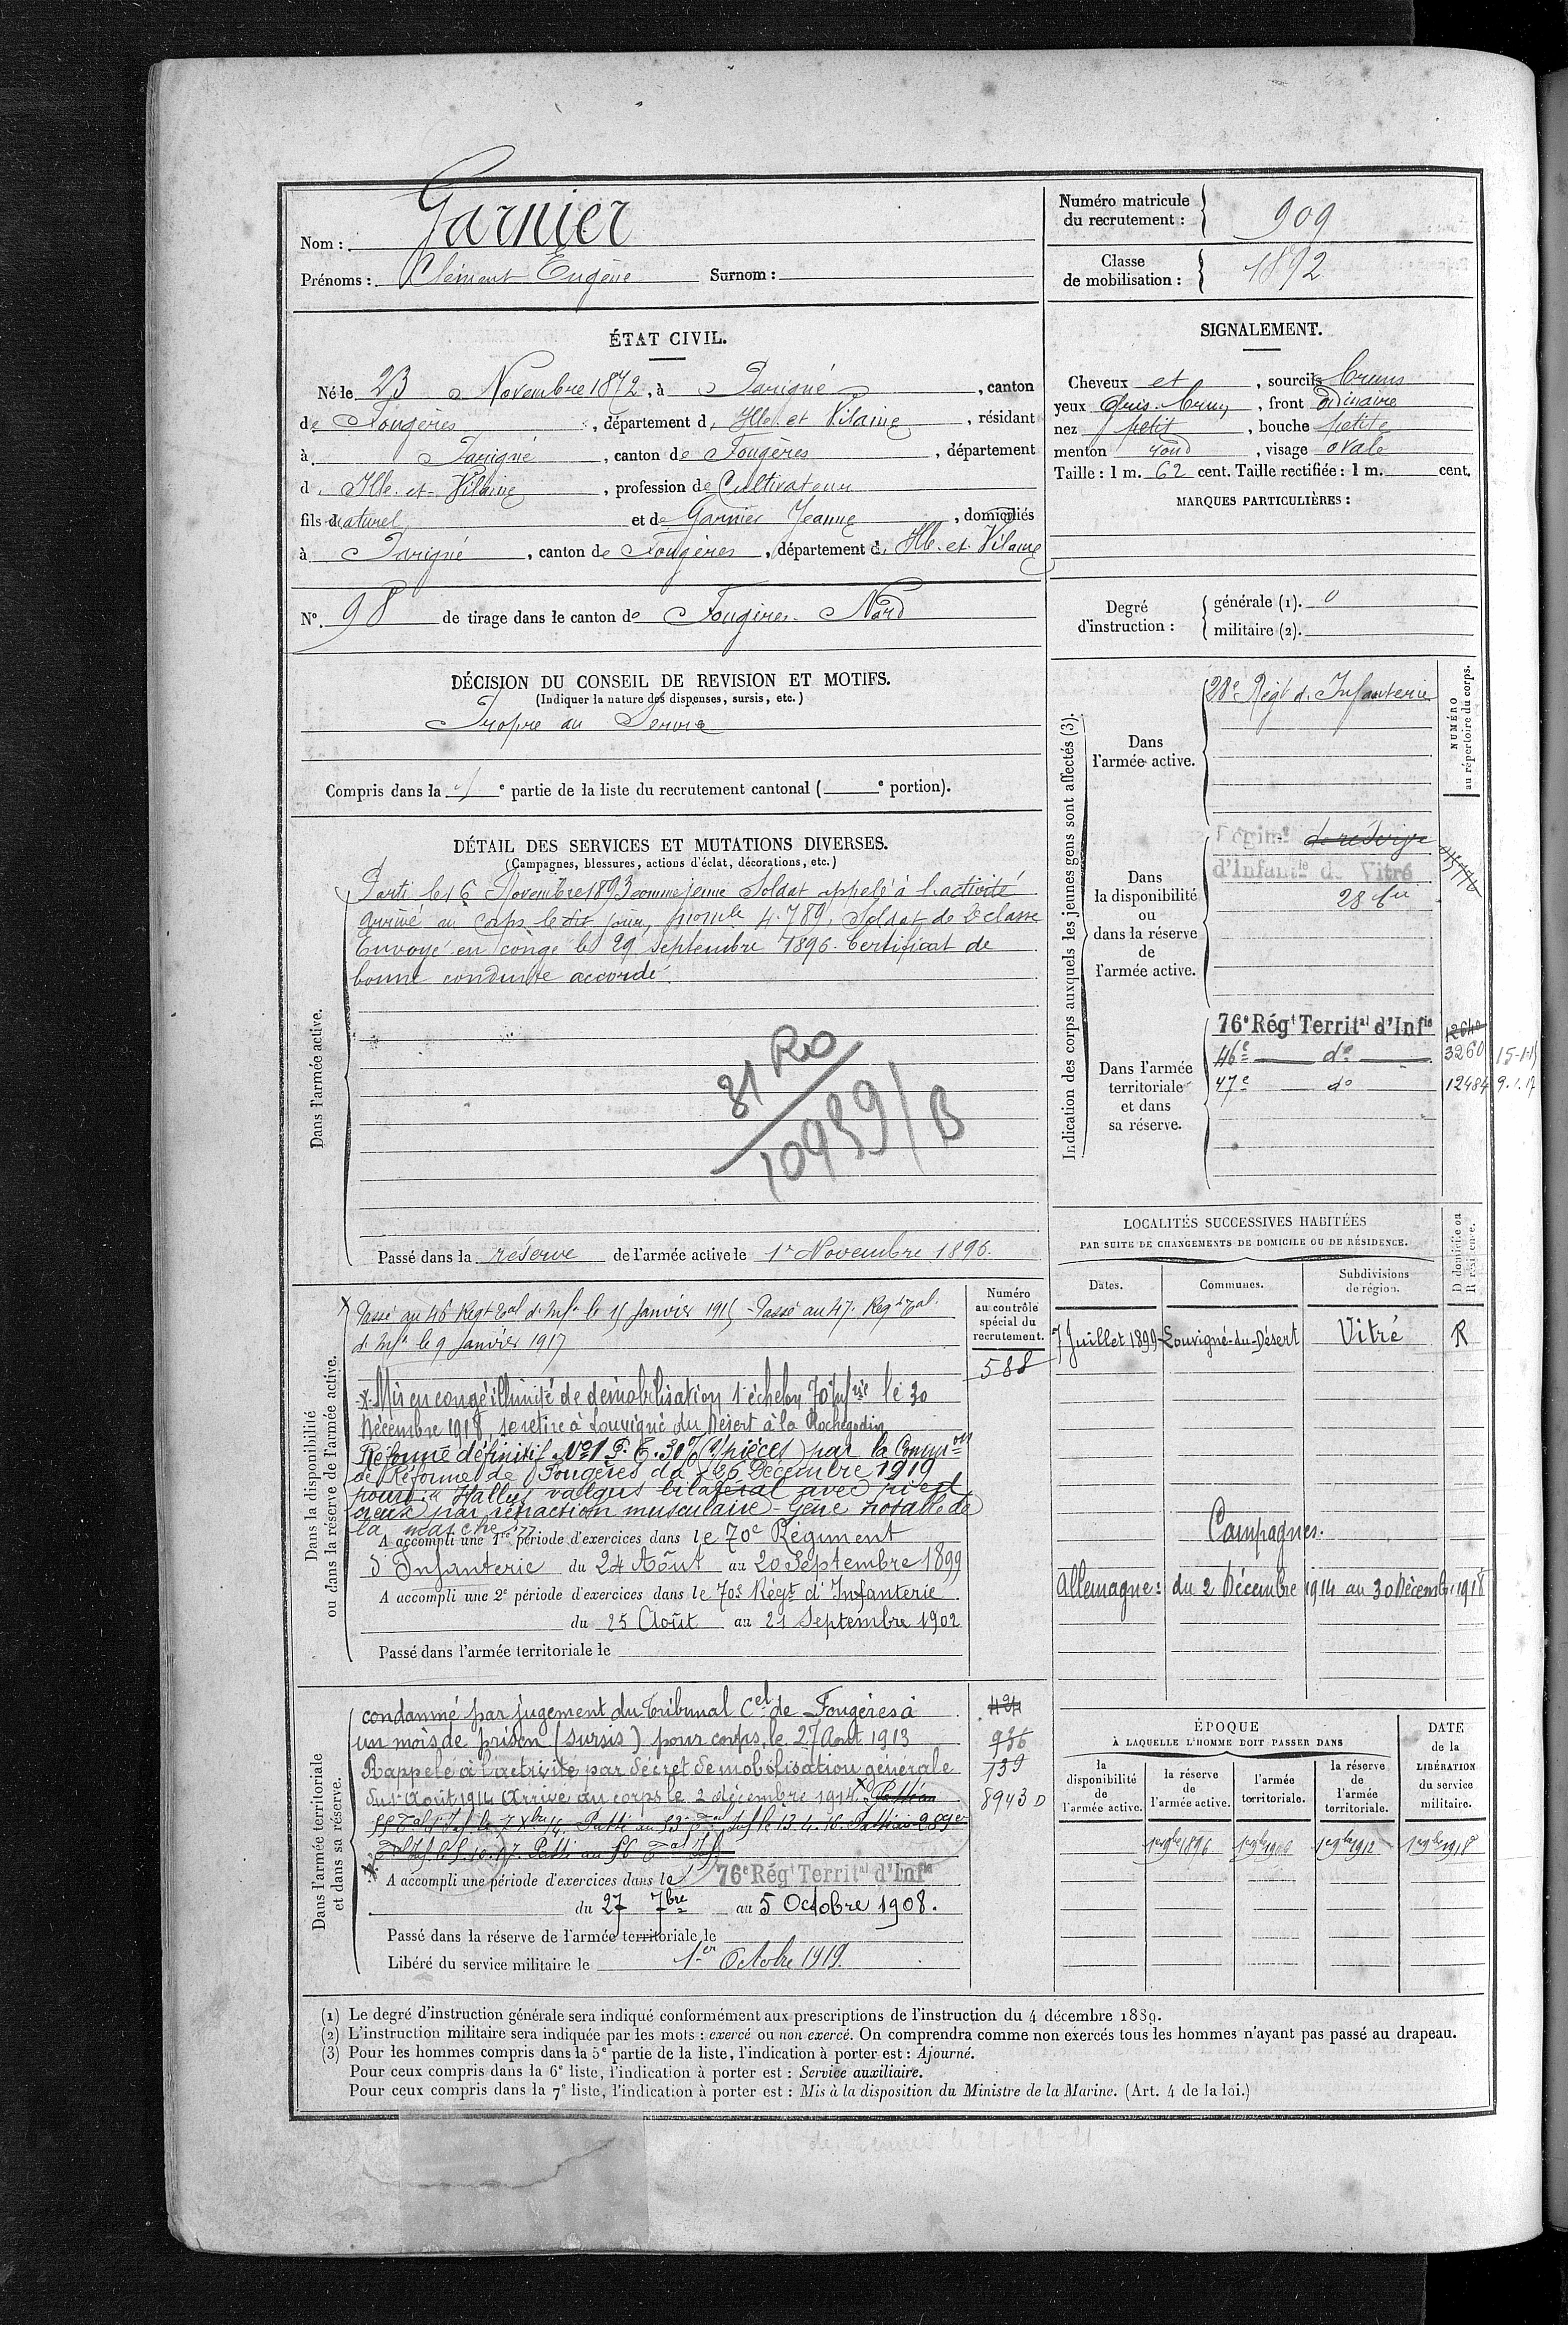 Nom : Garnier
Prénoms : Clément Eugène Surnom :
Numéro matricule du recrutement : 909
Classe de mobilisation : 1892
ÉTAT CIVIL.
Né le 23 Novembre 1872, à Parigné, canton
de Fougères, département d'Ille et Vilaine, résidant
à Parigné, canton de Fougères, département
d'Ille et Vilaine, profession de Cultivateur
fils naturel et de Garnier Jeanne, domiciliés
à Parigné, canton de Fougères, département d'Ille et Vilaine
N° 98 de tirage dans le canton de Fougères Nord
SIGNALEMENT.
Cheveux et, sourcils bruns
yeux gris-brun, front ordinaire
nez petit, bouche petite
menton rond, visage ovale
Taille : 1 m. 62 cent. Taille rectifiée : 1 m. cent.
MARQUES PARTICULIÈRES :
Degré d'instruction : générale (1). 0
militaire (2).
DÉCISION DU CONSEIL DE REVISION ET MOTIFS.
(Indiquer la nature des dispenses, sursis, etc.)
Propre au Service
Compris dans la 1e partie de la liste du recrutement cantonal ( e portion).
DÉTAIL DES SERVICES ET MUTATIONS DIVERSES.
(Campagnes, blessures, actions d'éclat, décorations, etc.)
Dans l'armée active.
Parti le 16 Novembre 1893 comme jeune Soldat appelé à l'activité
arrivé au corps le dit jour, nomle 4.789. Soldat de 2e classe
Envoyé en congé le 29 Septembre 1896. Certificat de
bonne conduite accordé.
81 Ro
10939/B
Passé dans la réserve de l'armée active le 1er Novembre 1896.
Indication des corps auxquels les jeunes gens sont affectés (3).
NUMÉRO au répertoire du corps.
Dans l'armée active.
28e Régt d'Infanterie
Dans la disponibilité ou dans la réserve de l'armée active.
Régimt de réserve
d'Infantie de Vitré
Dans l'armée territoriale et dans sa réserve.
76e Régt Territal d'Infie
46e do 3260 15-1-15
47e do 12484 9.1.17
LOCALITÉS SUCCESSIVES HABITÉES
PAR SUITE DE CHANGEMENTS DE DOMICILE OU DE RÉSIDENCE.
Dates. Communes. Subdivisions de région. D domicile ou R résidence.
7 Juillet 1899 Louvigné-du-Désert Vitré R
Campagnes.
Allemagne : du 2 Décembre 1914 au 30 Décembre 1918
Dans la disponibilité ou dans la réserve de l'armée active.
Numéro au contrôle spécial du recrutement.
588
Passé au 46 Regt Tal d'Infie le 15 Janvier 1915 - Passé au 47e Regt Tal
d'Infie le 9 Janvier 1917
* Mis en congé illimité de démobilisation 1er échelon 70 Infrie le 30
Décembre 1918, se retire à Louvigné du Désert à la Rochegodin
Réformé définitif No 1 P. E. 30% (s/pièces) par la Common
de Réforme de Fougères du 26 Décembre 1919
pour : "Hallux valgus bilatéral avec pied
creux par rétraction musculaire - Gêne notable de
la marche"
A accompli une 1re période d'exercices dans le 70e Régiment
d'Infanterie du 24 Août au 20 Septembre 1899
A accompli une 2e période d'exercices dans le 70e Régt d'Infanterie
du 25 Août au 21 Septembre 1902
Passé dans l'armée territoriale le
Dans l'armée territoriale et dans sa réserve.
condamné par jugement du Tribunal Cel de Fougères à
un mois de prison (sursis) pour coups, le 27 Août 1913
Rappelé à l'activité par décret de mobilisation générale
du 1er Août 1914 Arrivé au corps le 2 décembre 1914.
936
139
8943 D
A accompli une période d'exercices dans le 76e Régt Territal d'Infie
du 27 7bre au 5 Octobre 1908.
Passé dans la réserve de l'armée territoriale le
Libéré du service militaire le 1er Octobre 1919.
ÉPOQUE
À LAQUELLE L'HOMME DOIT PASSER DANS
la disponibilité de l'armée active. la réserve de l'armée active. l'armée territoriale. la réserve de l'armée territoriale.
DATE de la LIBÉRATION du service militaire.
1er 9bre 1896 1er 9bre 1906 1er 9bre 1912 1er 9bre 1918
(1) Le degré d'instruction générale sera indiqué conformément aux prescriptions de l'instruction du 4 décembre 1889.
(2) L'instruction militaire sera indiquée par les mots : exercé ou non exercé. On comprendra comme non exercés tous les hommes n'ayant pas passé au drapeau.
(3) Pour les hommes compris dans la 5e partie de la liste, l'indication à porter est : Ajourné.
Pour ceux compris dans la 6e liste, l'indication à porter est : Service auxiliaire.
Pour ceux compris dans la 7e liste, l'indication à porter est : Mis à la disposition du Ministre de la Marine. (Art. 4 de la loi.)